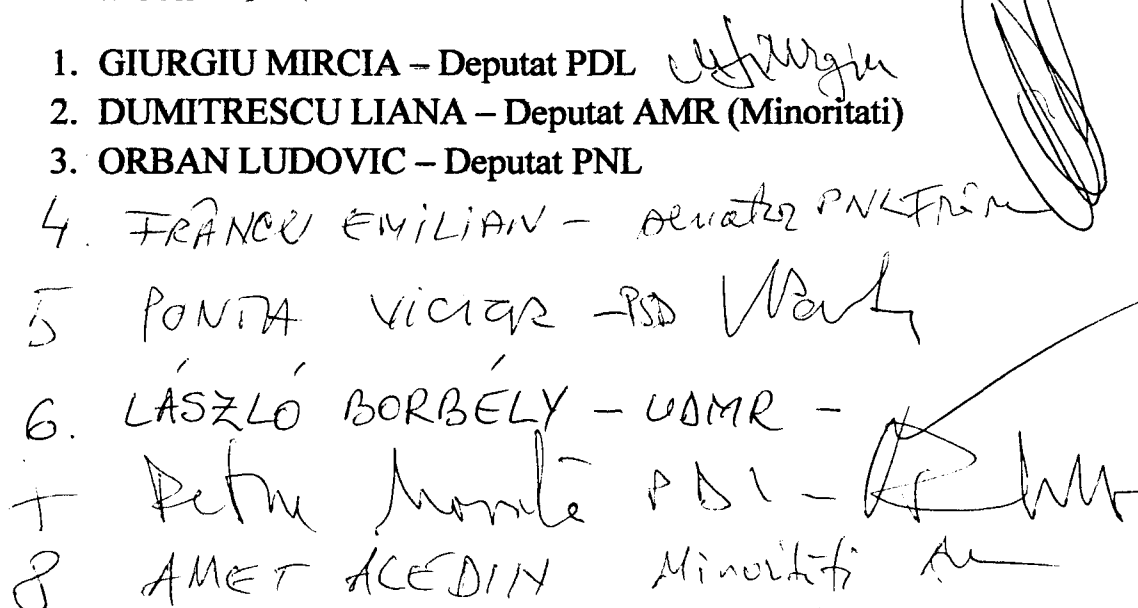 1. GIURGIU MIRCIA – Deputat PDL
2. DUMITRESCU LIANA – Deputat AMR (Minoritati)
3. ORBAN LUDOVIC – Deputat PNL
4. FRÂNCU EMILIAN – senator PNL
5 PONTA VICTOR – PSD
6. LÁSZLÓ BORBÉLY – UDMR –
7 Petru PDL –
8 AMET ALEDIN Minorități